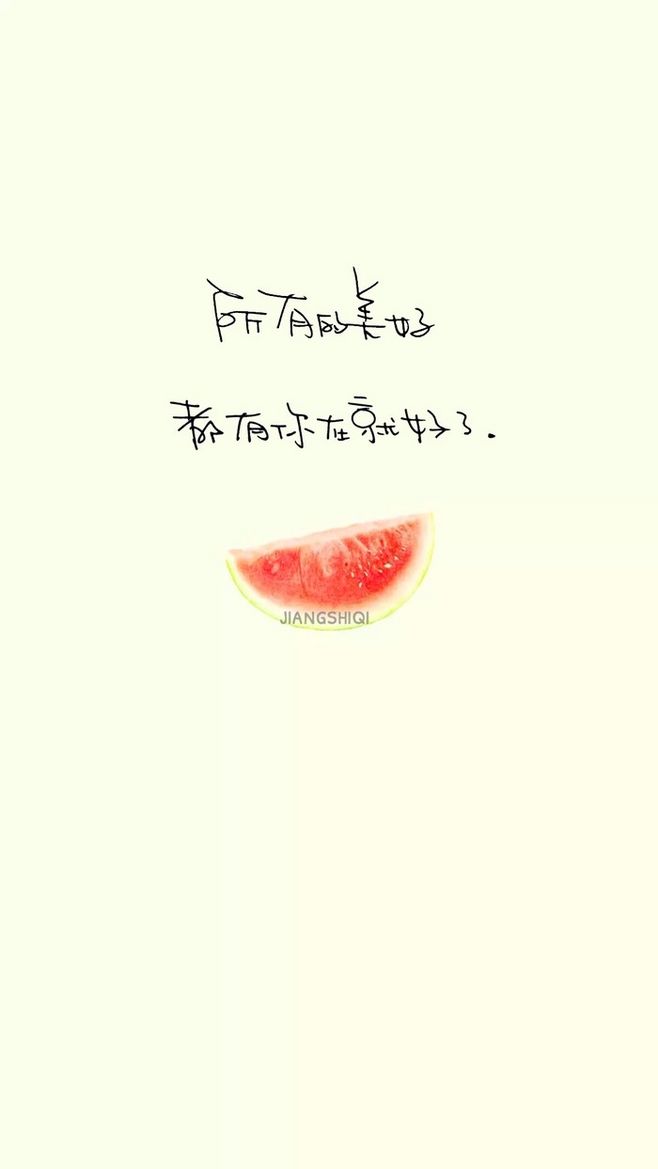 所有的美好
都有你在就好了.
JIANGSHIQI